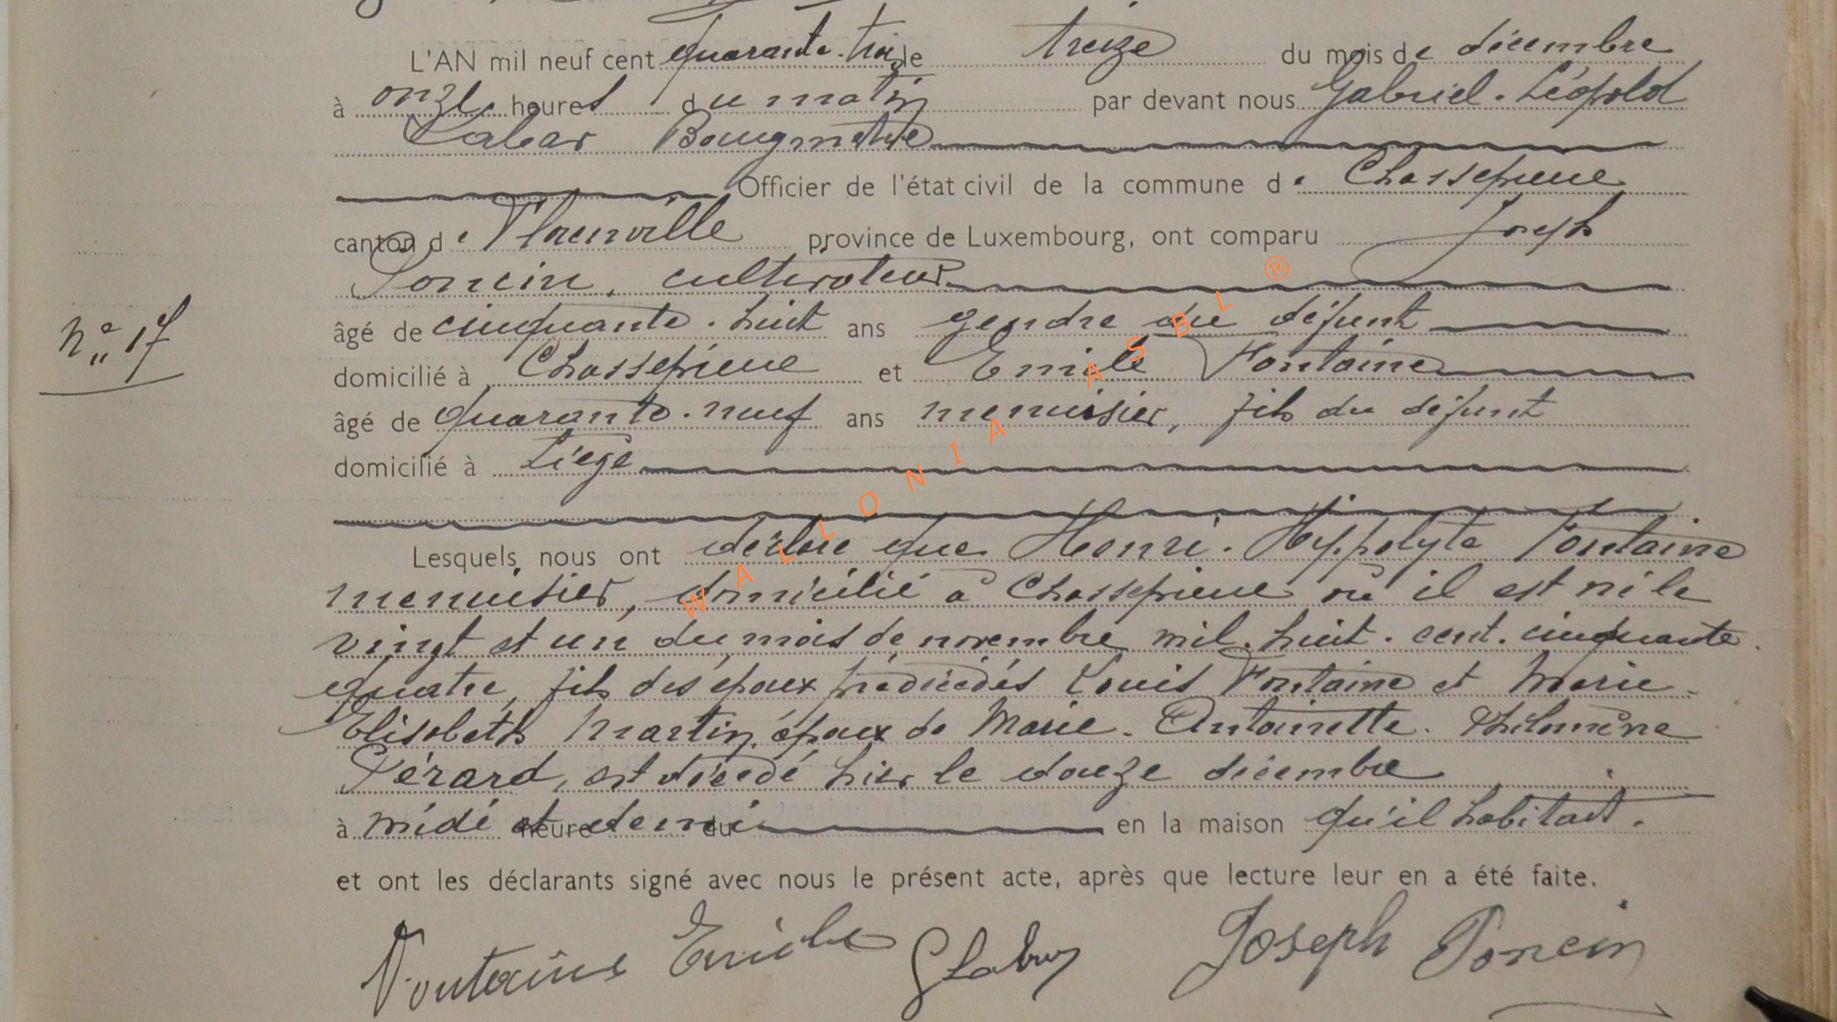 L'AN mil neuf cent quarante-trois, le treize du mois de décembre
à onze heures du matin par devant nous Gabriel-Léopold
Labar Bourgmestre
Officier de l'état civil de la commune de Chassepierre
canton de Florenville province de Luxembourg, ont comparu Joseph
Poncin, cultivateur
âgé de cinquante-huit ans gendre du défunt
N° 17
domicilié à Chassepierre et Emile Fontaine
âgé de quarante-neuf ans menuisier, fils du défunt
domicilié à Liège
Lesquels nous ont déclaré que Henri-Hyppolyte Fontaine
menuisier, domicilié à Chassepierre où il est né le
vingt et un du mois de novembre mil-huit-cent-cinquante
quatre, fils des époux prédécédés Louis Fontaine et Marie-
Elisabeth Martin, époux de Marie-Antoinette-Philomène
Pérard, est décédé hier le douze décembre
à midi et demi heure du en la maison qu'il habitait.
et ont les déclarants signé avec nous le présent acte, après que lecture leur en a été faite.
Fontaine Emile GLabar Joseph Poncin
WALLONIA ASBL ®